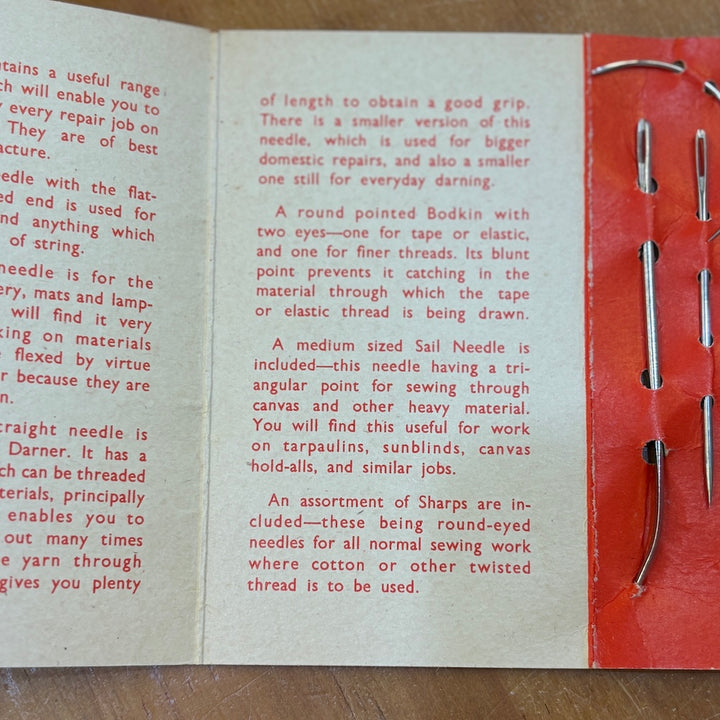 tains a useful range
ch will enable you to
every repair job on
They are of best
acture.
edle with the flat-
ed end is used for
nd anything which
of string.
needle is for the
ery, mats and lamp-
will find it very
king on materials
flexed by virtue
r because they are
n.
traight needle is
Darner. It has a
ch can be threaded
terials, principally
enables you to
out many times
e yarn through
gives you plenty
of length to obtain a good grip.
There is a smaller version of this
needle, which is used for bigger
domestic repairs, and also a smaller
one still for everyday darning.
A round pointed Bodkin with
two eyes—one for tape or elastic,
and one for finer threads. Its blunt
point prevents it catching in the
material through which the tape
or elastic thread is being drawn.
A medium sized Sail Needle is
included—this needle having a tri-
angular point for sewing through
canvas and other heavy material.
You will find this useful for work
on tarpaulins, sunblinds, canvas
hold-alls, and similar jobs.
An assortment of Sharps are in-
cluded—these being round-eyed
needles for all normal sewing work
where cotton or other twisted
thread is to be used.